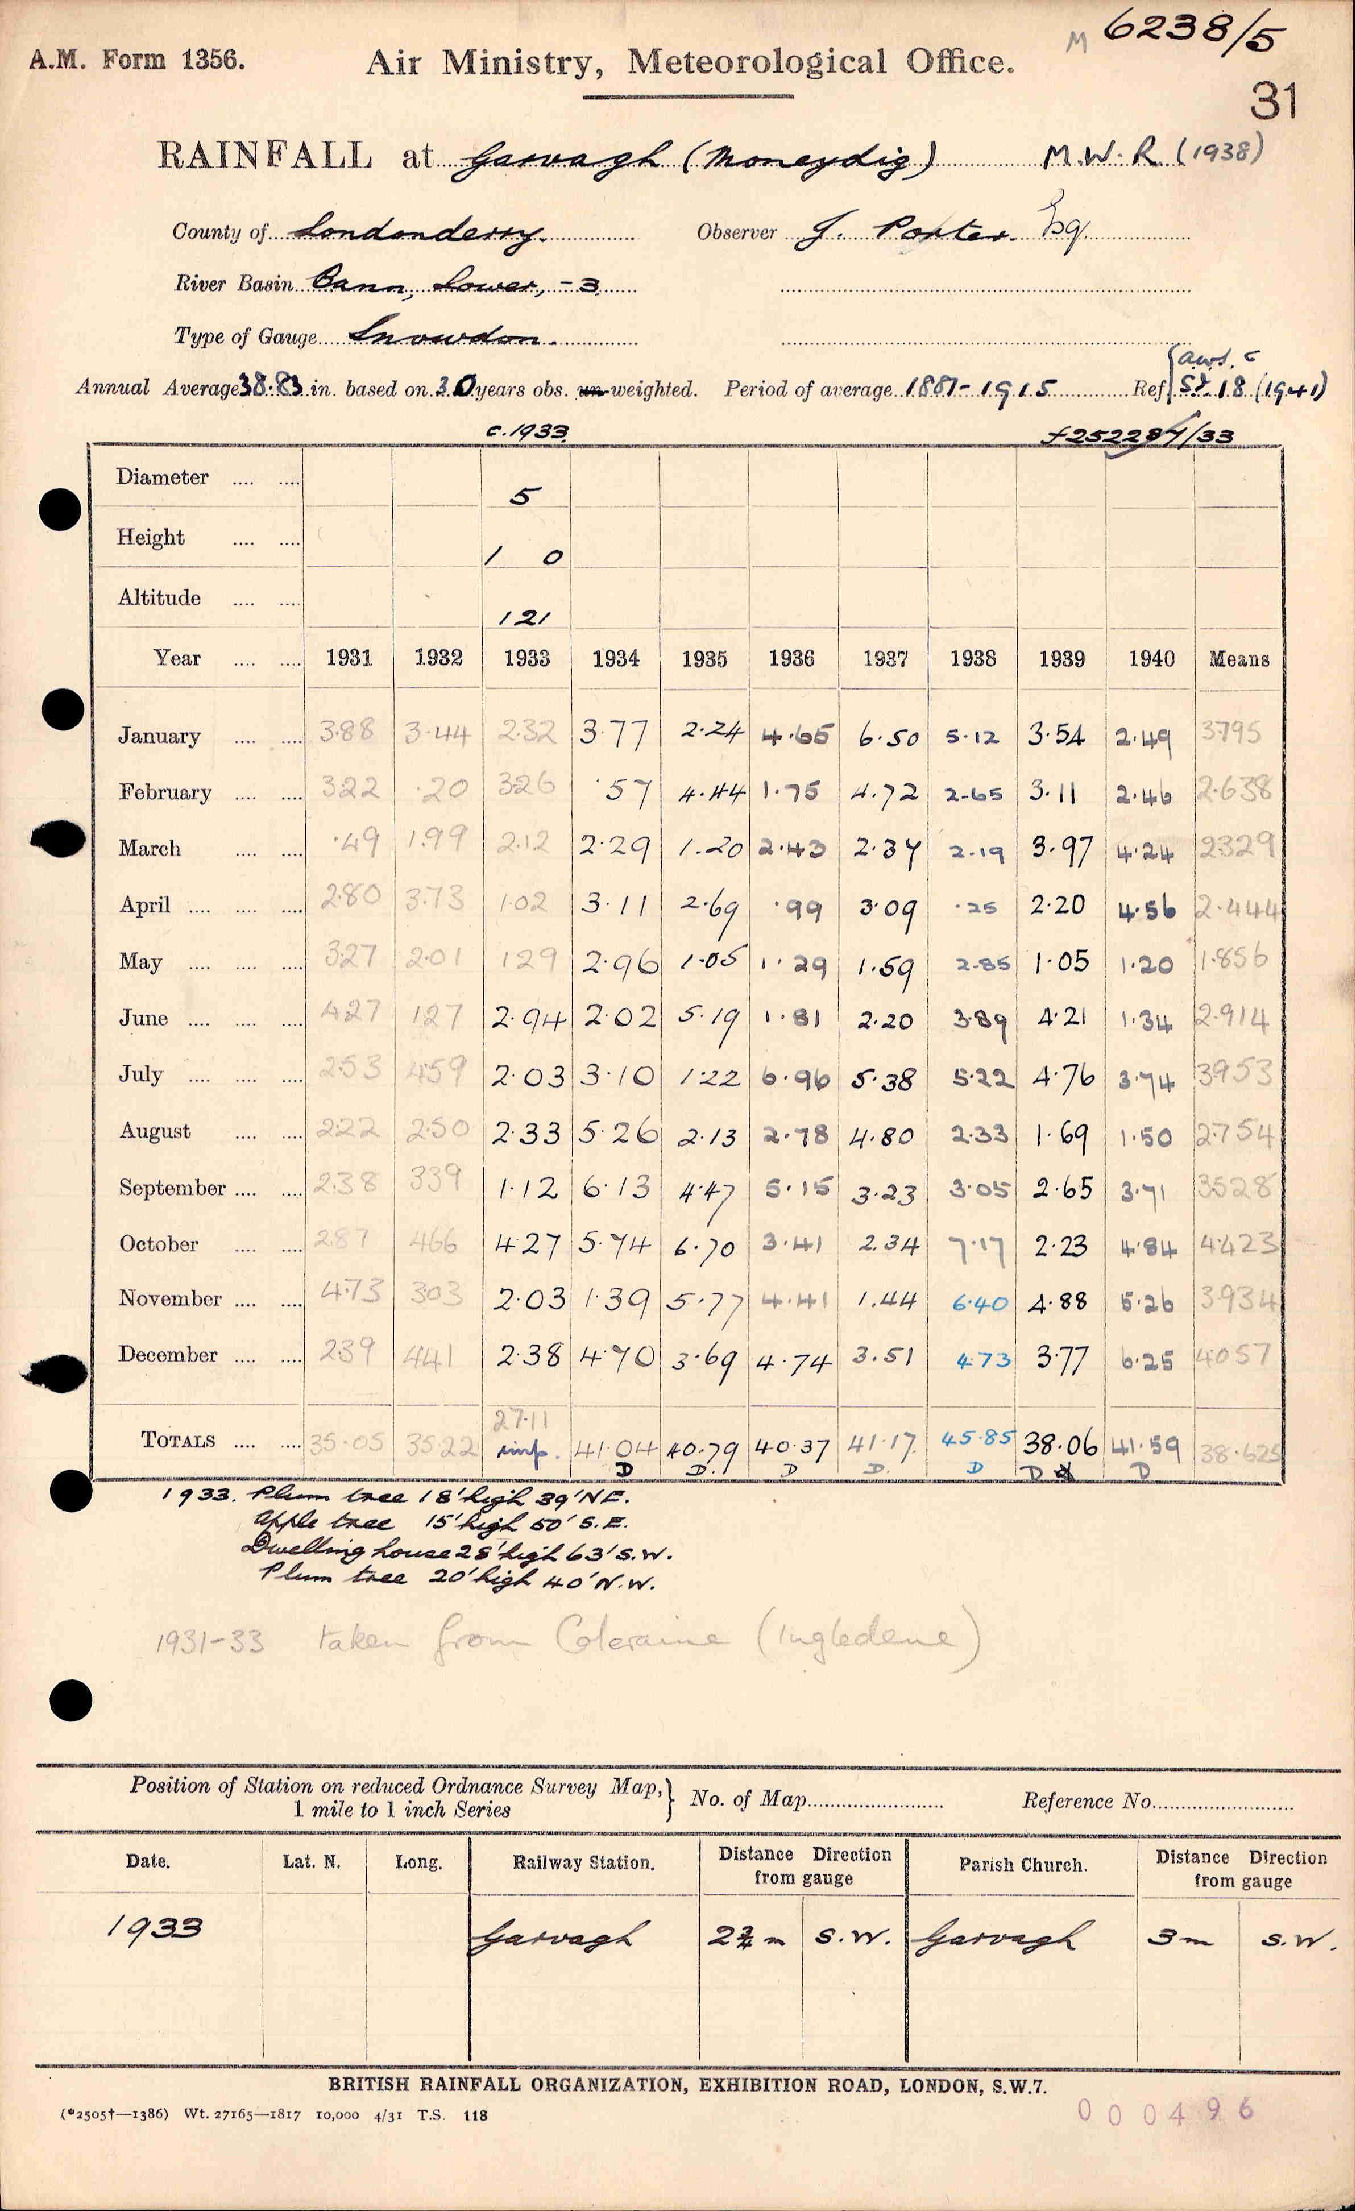 M 6238/5
A.M. Form 1356. Air Ministry, Meteorological Office.
31
RAINFALL at Garvagh (Moneydig) M.W.R (1938)
County of Londonderry. Observer J. Porter. Esq.
River Basin Bann, Lower, -3
Type of Gauge Snowdon.
Annual Average 38.83 in. based on 30 years obs. un-weighted. Period of average 1881-1915 Ref. St. 18 (1941)
c.1933
Diameter .... .... 5
Height .... .... 1 0
Altitude .... .... 121
Year .... .... 1931 1932 1933 1934 1935 1936 1937 1938 1939 1940 Means
January .... .... 3.88 3.44 2.32 3.77 2.24 4.65 6.50 5.12 3.54 2.49 3.795
February .... .... 3.22 .20 3.26 .57 4.44 1.75 4.72 2.65 3.11 2.46 2.638
March .... .... .49 1.99 2.12 2.29 1.20 2.43 2.37 2.19 3.97 4.24 2.329
April .... .... .... 2.80 3.73 1.02 3.11 2.69 .99 3.09 .25 2.20 4.56 2.444
May .... .... .... 3.27 2.01 1.29 2.96 1.05 1.29 1.59 2.85 1.05 1.20 1.856
June .... .... .... 4.27 1.27 2.94 2.02 5.19 1.81 2.20 3.89 4.21 1.34 2.914
July .... .... .... 2.53 4.59 2.03 3.10 1.22 6.96 5.38 5.22 4.76 3.74 3.953
August .... .... 2.22 2.50 2.33 5.26 2.13 2.78 4.80 2.33 1.69 1.50 2.754
September .... .... 2.38 3.39 1.12 6.13 4.47 5.15 3.23 3.05 2.65 3.71 3.528
October .... .... 2.87 4.66 4.27 5.74 6.70 3.41 2.34 7.17 2.23 4.84 4.423
November .... .... 4.73 3.03 2.03 1.39 5.77 4.41 1.44 6.40 4.88 5.26 3.934
December .... .... 2.39 4.41 2.38 4.70 3.69 4.74 3.51 4.73 3.77 6.25 4.057
27.11
TOTALS .... .... 35.05 35.22 imp. 41.04 40.79 40.37 41.17 45.85 38.06 41.59 38.625
D D. D D. D D D
1933. Plum tree 18' high 39' N.E.
Apple tree 15' high 50' S.E.
Dwelling house 28' high 63' S.W.
Plum tree 20' high 40' N.W.
1931-33 taken from Coleraine (Ingledene)
Position of Station on reduced Ordnance Survey Map, } No. of Map........................ Reference No.........................
1 mile to 1 inch Series
Date. Lat. N. Long. Railway Station. Distance Direction from gauge Parish Church. Distance Direction from gauge
1933 Garvagh 2¾ m S.W. Garvagh 3m S.W.
BRITISH RAINFALL ORGANIZATION, EXHIBITION ROAD, LONDON, S.W.7.
(*2505†—1386) Wt. 27165—1817 10,000 4/31 T.S. 118
000496